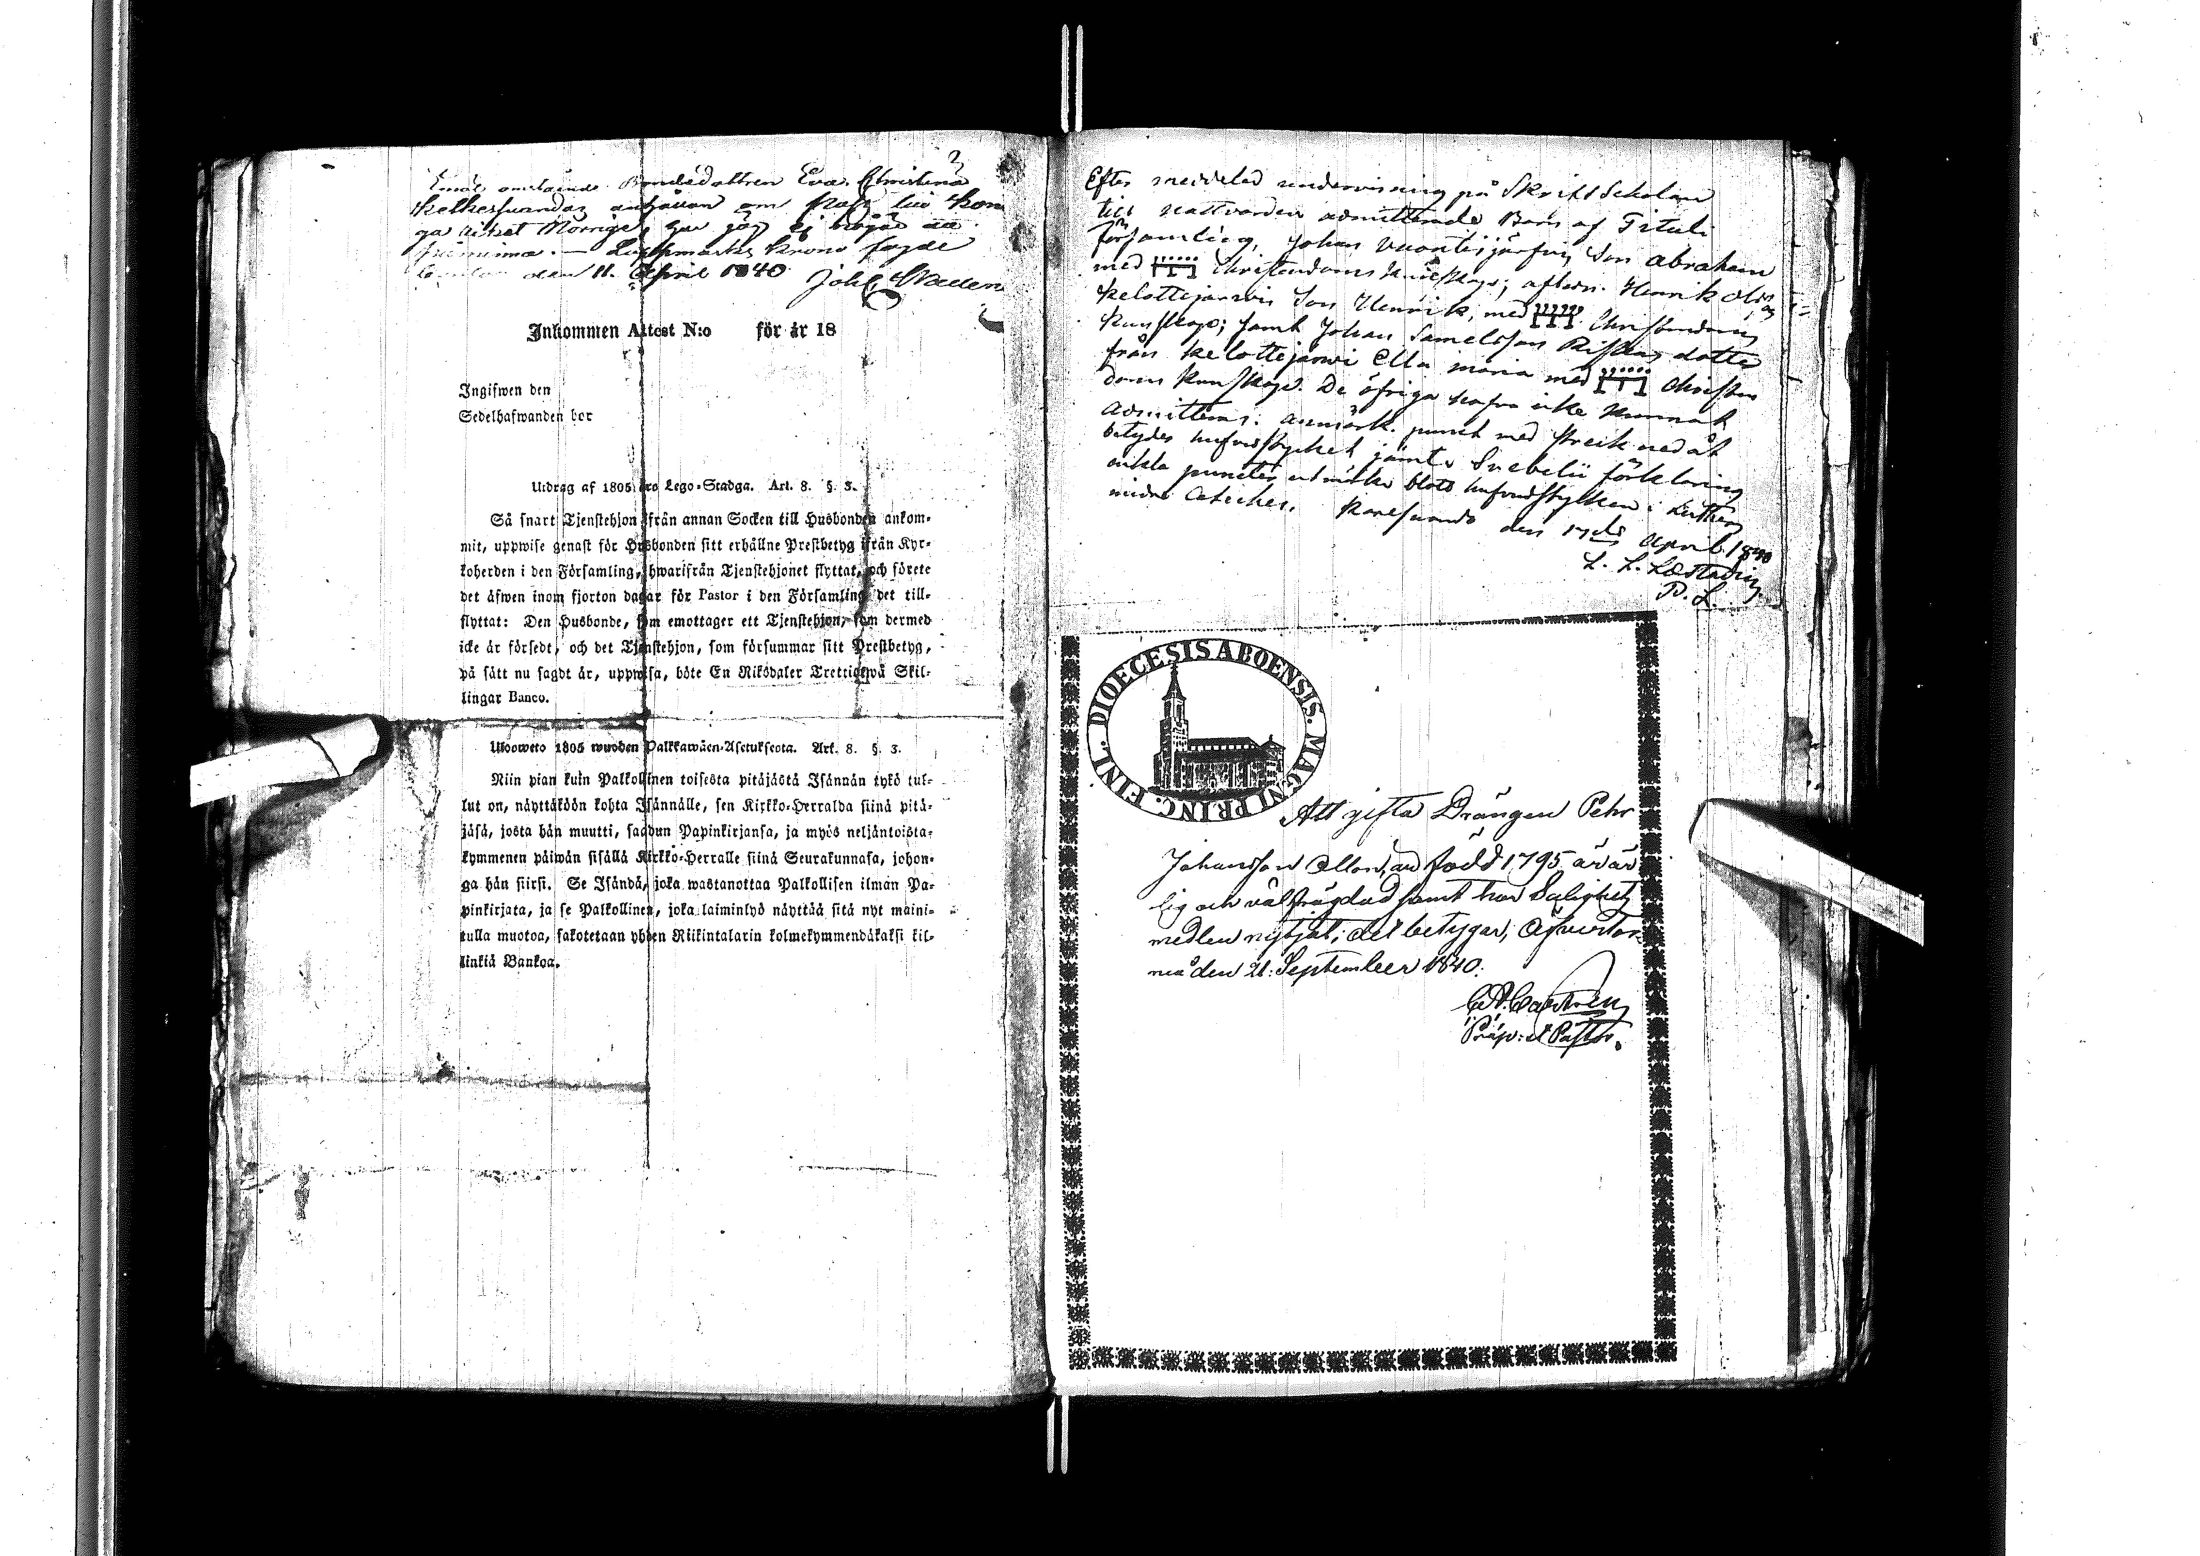 Emot omstående Bondedottren Eva Christina
Kelkesuandos anhållan om Pass till Kon
ga Riket Norrige, har jag ej något att
påminna. — Lappmarks Krono fogde
den 11. April 1840. Joh:
Inkommen Attest N:o för år 18
Ingifwen den
Sedelhafwanden bor
Utdrag af 1805 års Lego-Stadga. Art. 8. §. 3.
Så snart Tjenstehjon ifrån annan Socken till Husbonden ankom-
mit, uppwise genast för Husbonden sitt erhållne Prestbetyg ifrån Kyr-
koherden i den Församling, hwarifrån Tjenstehjonet flyttat, och förete
det äfwen inom fjorton dagar för Pastor i den Församling det till-
flyttat: Den Husbonde, som emottager ett Tjenstehjon, som dermed
icke är försedt, och det Tjenstehjon, som försummar sitt Prestbetyg,
på sätt nu sagdt är, uppwisa, böte En Riksdaler Trettiotwå Skil-
lingar Banco.
Uloosweto 1805 wuoden Palkkawäen-Asetuksesta. Art. 8. §. 3.
Niin pian kuin Palkollinen toisesta pitäjästä Isännän tykö tul-
lut on, näyttäköön kohta Isännälle, sen Kirkko-Herralda siinä pitä-
jäsä, josta hän muutti, saadun Papinkirjansa, ja myös neljäntoista-
kymmenen päiwän sisällä Kirkko-Herralle siinä Seurakunnasa, johon-
ga hän siirsi. Se Isändä, joka wastanottaa Palkollisen ilman Pa-
pinkirjata, ja se Palkollinen, joka laiminlyö näyttää sitä nyt maini-
tulla muotoa, sakotetaan yhden Riikintalarin kolmekymmendäkaksi kil-
linkiä Bankoa.
Efter meddelad undervisning på Skriftskolan
till nattvarden admitterade Barn af Tituli
församling, Johan Vuontisjärfvis Son Abraham
med Christendoms kunskap; aflidn. Henrik Olss
Kelottejärwis Son Henrik, med Christendoms
kunskap; samt Johan Samelsson dotter
från Kelottejärwi Ella Maria med Christen
doms kunskap. De öfriga hafva icke kunnat
admitteras. anmärk. punct med streck nedåt
betyder hufvudstycket jämte Svebelii förklaring
enkla puncter utmärka blott hufvudstycken i Lutheri
mindre Cateches. Karesuando den 17de April 1840
L. L. Læstadius
P. L.
DIOECESIS ABOENSIS. MAGNI PRINC. FINL.
Att gifta Drängen Pehr
Johansson född 1795 är är
lig och välfrägdad samt har Salighets
medlen nyttjat; det betygar, Öfvertor-
neå den 21. September 1840.
Castrén
Præp: et Pastor.